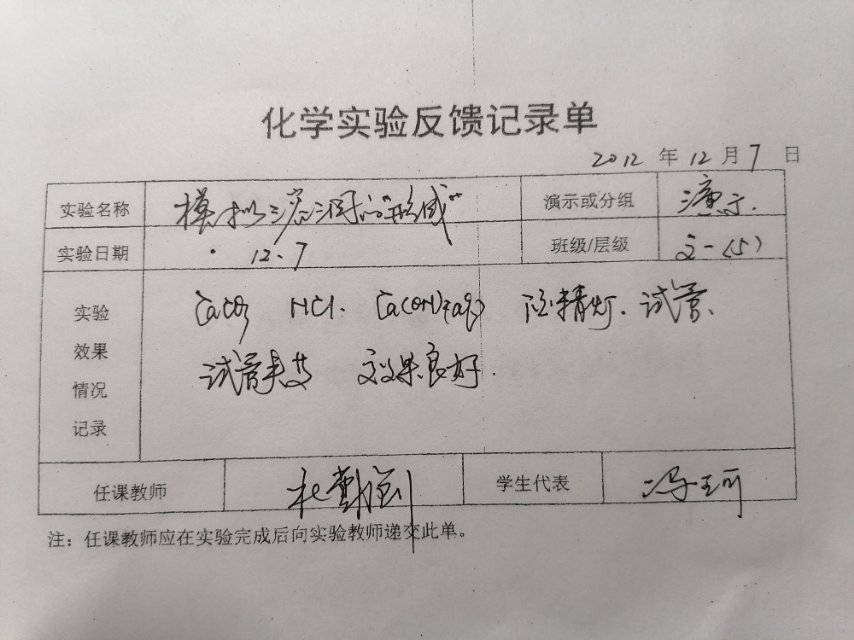 化学实验反馈记录单
2012 年 12 月 7 日
实验名称 模拟溶洞的"形成" 演示或分组 演示.
实验日期 12.7 班级/层级 文一(5)
实验效果情况记录
CaCO3 HCl. Ca(OH)2(aq) 酒精灯. 试管.
试管夹 效果良好.
任课教师 学生代表 冯可
注：任课教师应在实验完成后向实验教师递交此单。